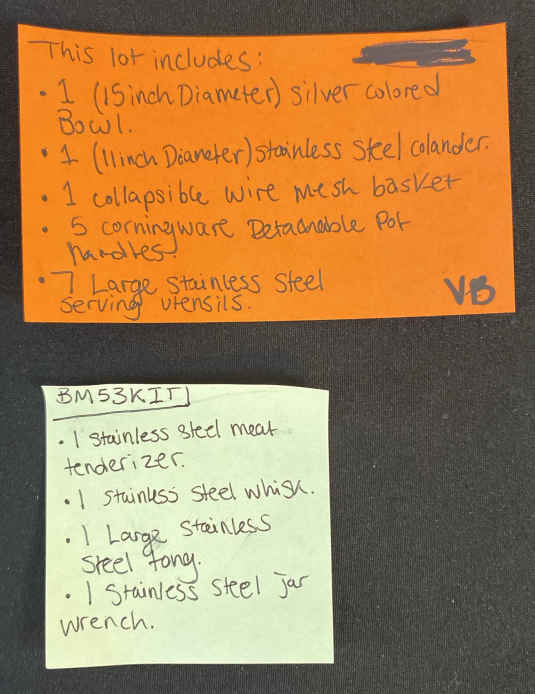 This lot includes:
• 1 (15 inch Diameter) silver colored
Bowl.
• 1 (11 inch Diameter) stainless steel colander.
• 1 collapsible wire mesh basket
• 5 corningware Detachable Pot
handles.
• 7 Large stainless steel
serving utensils.
VB
BM53KIT
• 1 stainless steel meat
tenderizer.
• 1 stainless steel whisk.
• 1 Large stainless
steel tong.
• 1 stainless steel jar
wrench.